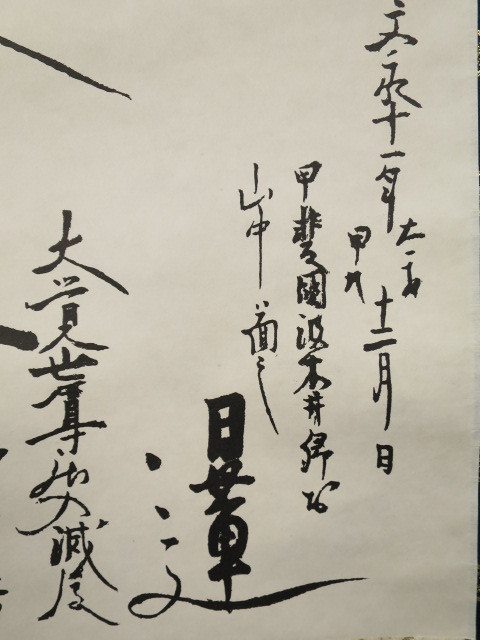 文永十一年太才甲戌十二月 日
甲斐國波木井郷於
山中圖之
日蓮
大覺世尊御入滅後